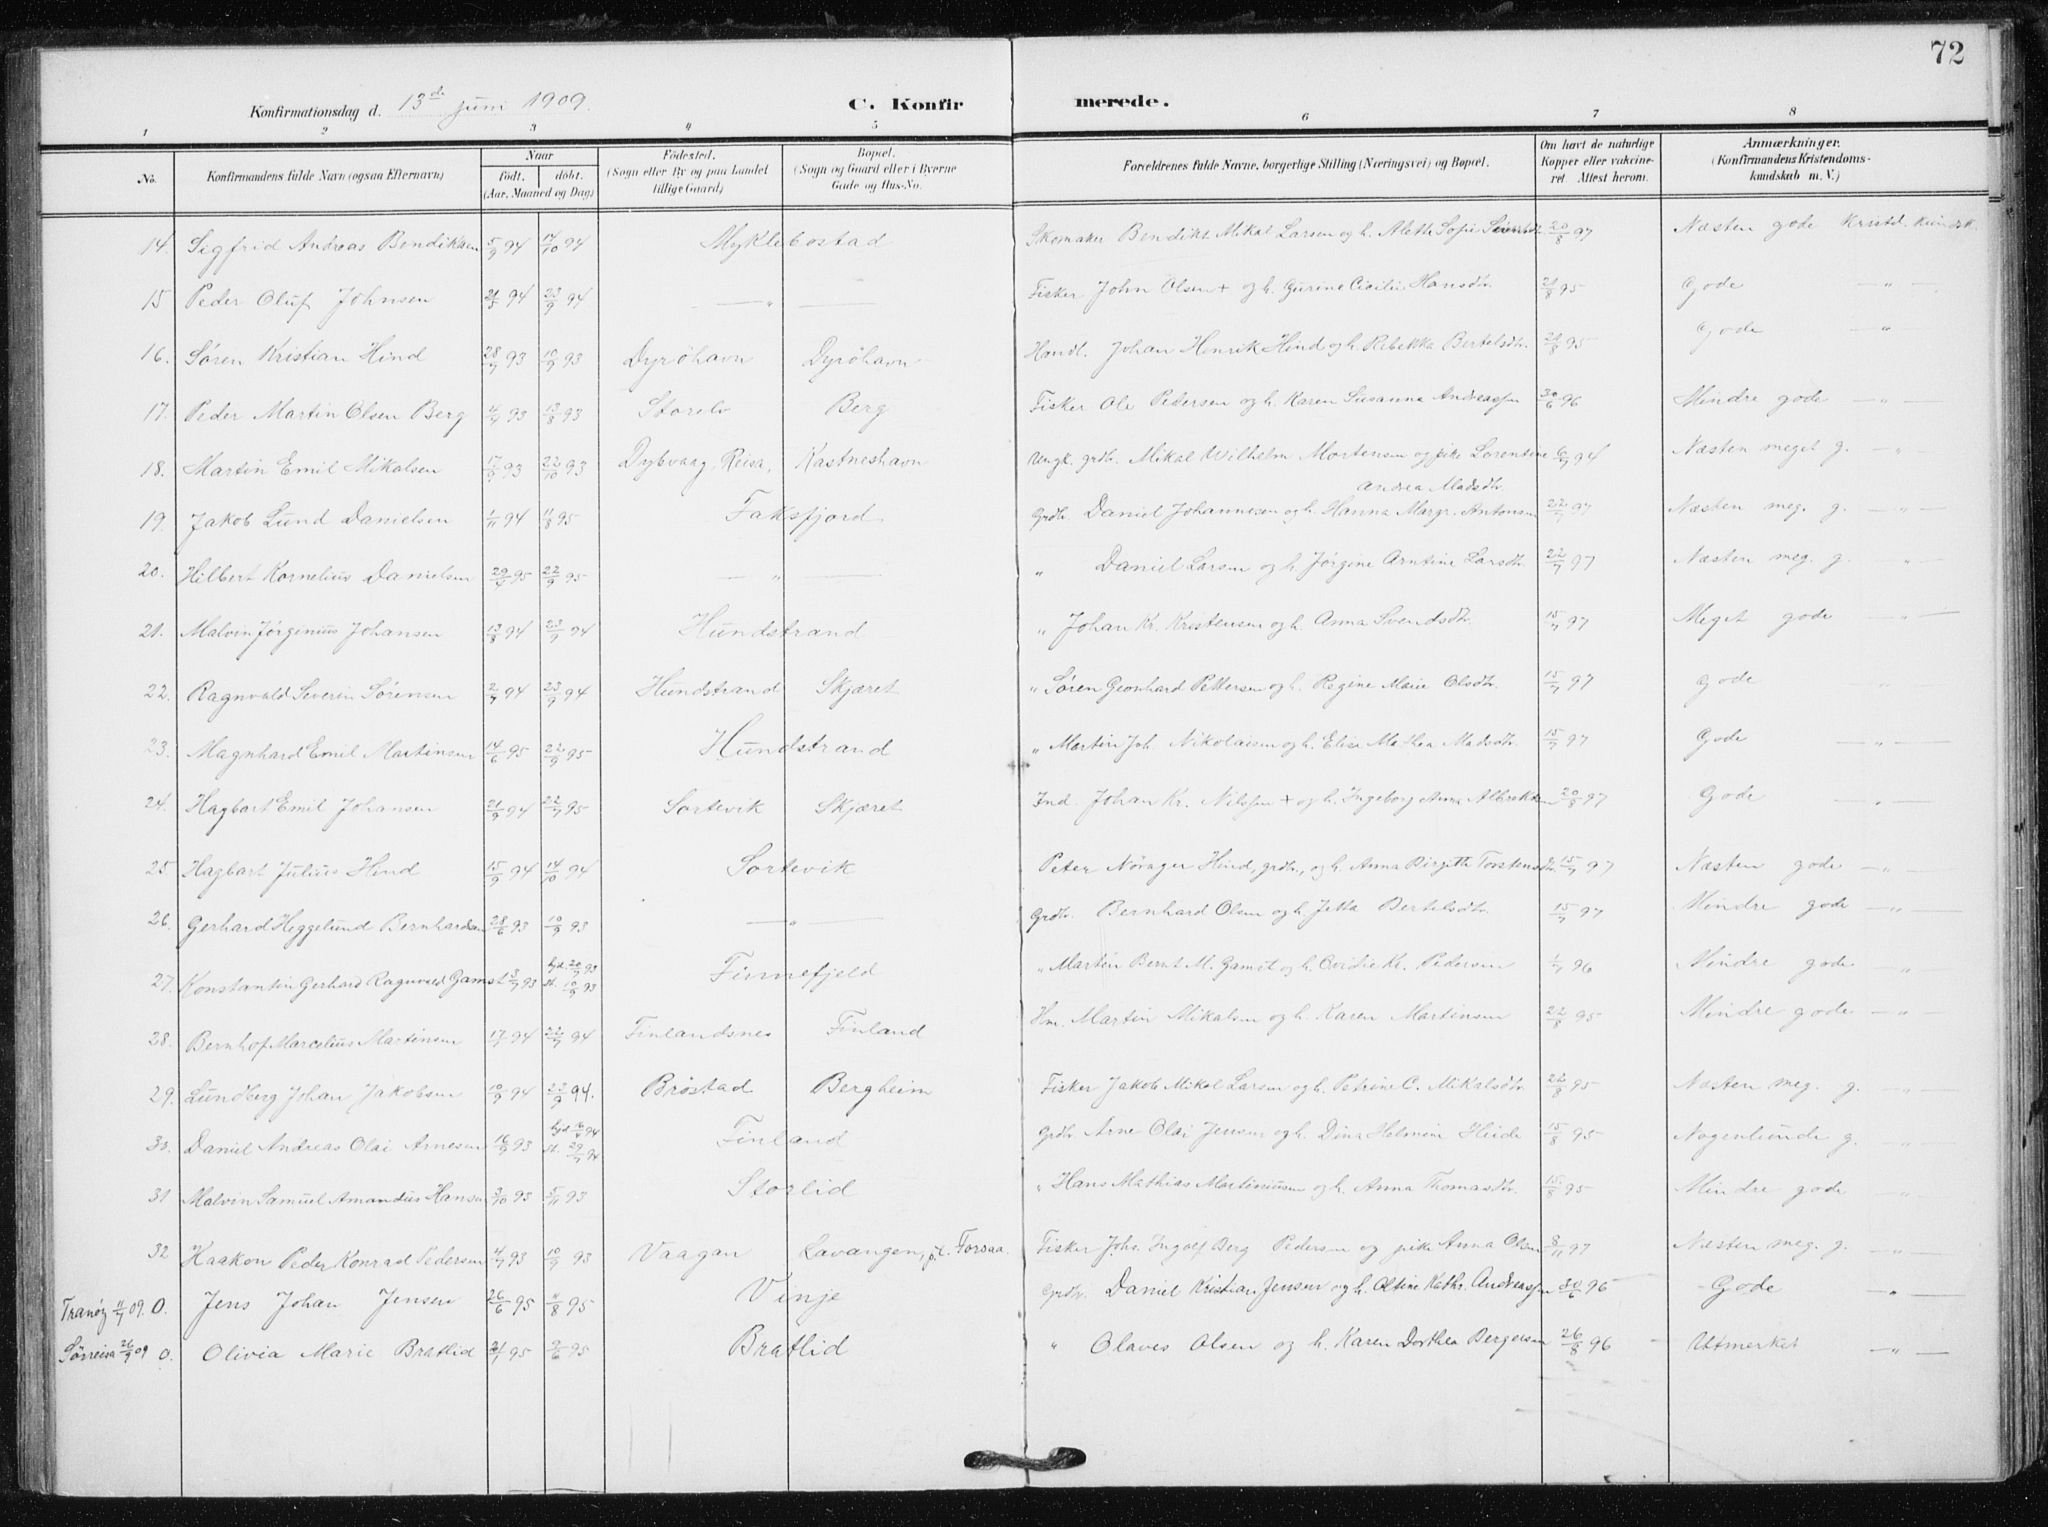 72
Konfirmationsdag d. 13de juni 1909. C. Konfir merede.
1 2 3 4 5 6 7 8
No. Konfirmandens fulde Navn (ogsaa Efternavn) Naar født. døbt. (Aar, Maaned og Dag) Fødested. (Sogn eller By og paa Landet tillige Gaard) Bopæl. (Sogn og Gaard eller i Byerne Gade og Hus-No. Forældrenes fulde Navne, borgerlige Stilling (Næringsvei) og Bopæl. Om havt de naturlige Kopper eller vakcineret. Attest herom. Anmærkninger. (Konfirmandens Kristendomskundskab m. V.)
14. Sigfrid Andreas Bendiksen 5/9 94 14/10 94 Myklebostad Skomaker Bendikt Mikal Larsen og h. Aleth Sofie 20/8 97 Næsten gode Kristd. kundsk.
15 Peder Oluf Johnsen 94 23/9 94 — " — Fisker John Olsen + og h. Gurine Cicilie Hansdtr. 21/8 95 Gode — " —
16. Søren Kristian Hind 28/7 93 10/9 93 Dyröhavn Dyröhavn Handl. Johan Henrik Hind og h. Rebekka Bertelsdtr. 21/8 95 Gode — " —
17. Peder Martin Olsen Berg 4/7 93 13/8 93 Storelv Berg Fisker Ole Pedersen og h. Karen Susanna Andreassen 30/6 96 Mindre gode — " —
18. Martin Emil Mikalsen 17/9 93 22/10 93 Dybvaag, Reisa, Kastneshavn Ungk. grdbr. Mikal Wilhelm Mortensen og pike Lorentine 6/7 94 Næsten meget g. — " —
Andrea Madsdtr.
19. Jakob Lund Danielsen 1/11 94 11/8 95 Faksfjord Grdbr. Daniel Johannesen og h. Hanna Margr. Antonsen 22/7 97 Næsten meg. g. — " —
20. Hilbert Kornelius Danielsen 29/4 95 22/9 95 — " — " Daniel Larsen og h. Jörgine Arntine Larsdtr. 22/7 97 Næsten meg. g. " —
21. Malvin Jörgenius Johansen 13/8 94 23/9 94 Hundstrand " Johan Kr. Kristensen og h. Anna Svendsdtr. 15/7 97 Meget gode — " —
22. Ragnvald Severin Sörensen 2/7 94 23/9 94 Hundstrand Skjæret " Sören Geonhard Pettersen og h. Regine Marie Olsdtr. 15/7 97 Gode "
23. Magnhard Emil Martinsen 14/6 95 22/9 95 Hundstrand " Martin Joh. Nikolaisen og h. Elisa Mathea Madsdtr. 15/7 97 Gode — " —
24. Hagbart Emil Johansen 21/9 94 22/7 95 Sortevik Skjæret Ind. Johan Kr. Nilssen + og h. Ingeborg Anna Albrektsen 20/8 97 Gode — " —
25 Hagbart Julius Hind 15/9 94 14/10 94 Sortevik Peter Nörager Hind, grdbr., og h. Anna Birgitte Torstensdtr. 15/7 97 Næsten gode — " —
26. Gerhard Heggelund Bernhardsen 28/6 93 10/9 93 — " — Grdbr. Bernhard Olsen og h. Jetta Bertelsdtr. 15/7 97 Mindre gode — " —
27. Konstantin Gerhard Ragnvald Gamst 3/7 93 hjd. 20/7 93 st. 10/9 93 Finnefjeld " Martin Bernt M. Gamst og h. Ovidie Kr. Pedersen 1/7 96 Mindre gode — "
28. Bernhof Marcelius Martinsen 94 22/7 94 Finlandsnes Finland Hm. Martin Mikalsen og h. Karen Martinsen 22/8 95 Mindre gode — "
29. Lundberg Johan Jakobsen 10/9 94 23/9 94. Bröstad Bergheim Fisker Jakob Mikal Larsen og h. Petrine C. Mikalsdtr. 22/8 95 Næsten meg. g. " —
30. Daniel Andreas Olai Arnesen 93 hjd. 94 st. 29/7 94 Finland Grdbr. Arne Olai Jensen og h. Dina Helmine Heide 15/8 95 Nogenlunde g. " —
31 Malvin Samuel Amandus Hansen 3/10 93 5/11 93 Storlid " Hans Mathias Martiniusen og h. Anna Thomasdtr. 15/8 95 Mindre gode — " —
32 Haakon Peder Konrad Pedersen 4/7 93 10/9 93 Vaagan Lavangen, p.t. Forsaa. Fisker Johs. Ingolf Berg Pedersen og pike Anna Olsen 8/11 97 Næsten meg. g. "
Tranöy 11/7 09. 0. Jens Johan Jensen 26/6 95 11/8 95 Vinje Grdbr. Daniel Kristian Jensen og h. Oltine Kathr. Andreassen 30/6 96 Gode " —
Sörreisa 26/9 09 0. Olivia Marie Bratlid 95 2/6 95 Bratlid " Olaves Olsen og h. Karen Dorthea Bergersen 26/8 96 Utmerket — " —